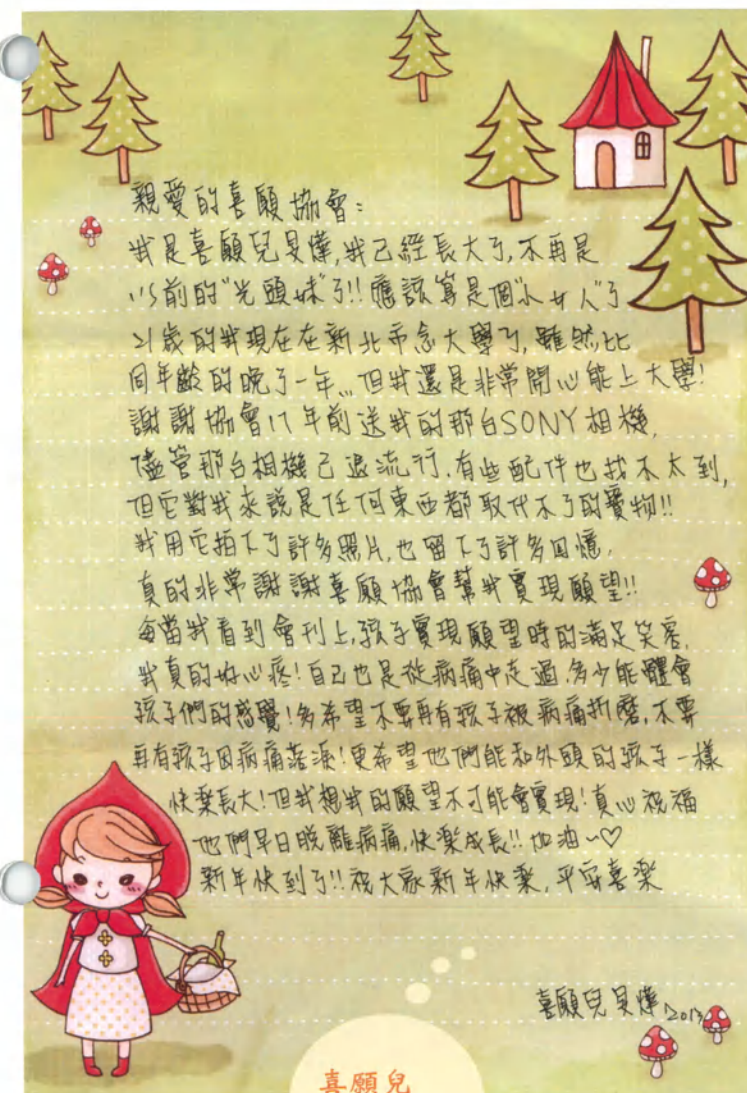 親愛的喜願協會:
我是喜願兒旻燁,我已經長大了,不再是
以前的"光頭妹"了!!應該算是個"小女人"了
21歲的我現在在新北市念大學了,雖然比
同年齡的晚了一年…但我還是非常開心能上大學!
謝謝協會17年前送我的那台SONY相機,
儘管那台相機已退流行,有些配件也找不太到,
但它對我來說是任何東西都取代不了的寶物!!
我用它拍下了許多照片,也留下了許多回憶,
真的非常謝謝喜願協會幫我實現願望!!
每當我看到會刊上,孩子實現願望時的滿足笑容,
我真的好心疼!自己也是從病痛中走過,多少能體會
孩子們的感覺!多希望不要再有孩子被病痛折磨,不要
再有孩子因病痛落淚!更希望他們能和外頭的孩子一樣
快樂長大!但我想我的願望不可能會實現!真心祝福
他們早日脫離病痛,快樂成長!!加油~♡
新年快到了!!祝大家新年快樂,平安喜樂
喜願兒旻燁 2013
喜願兒